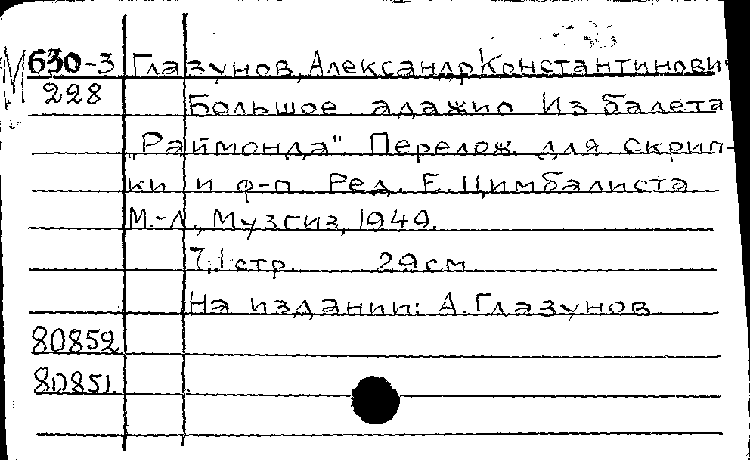 М 630-3 Глазунов, Александр Константинович
228 Большое адажио из балета
„Раймонда". Перелож. для скрип-
ки и ф-п. Ред. Е. Цимбалиста.
М.-Л., Музгиз, 1949.
7,1 стр. 29 см.
На издании: А. Глазунов
80852
80851